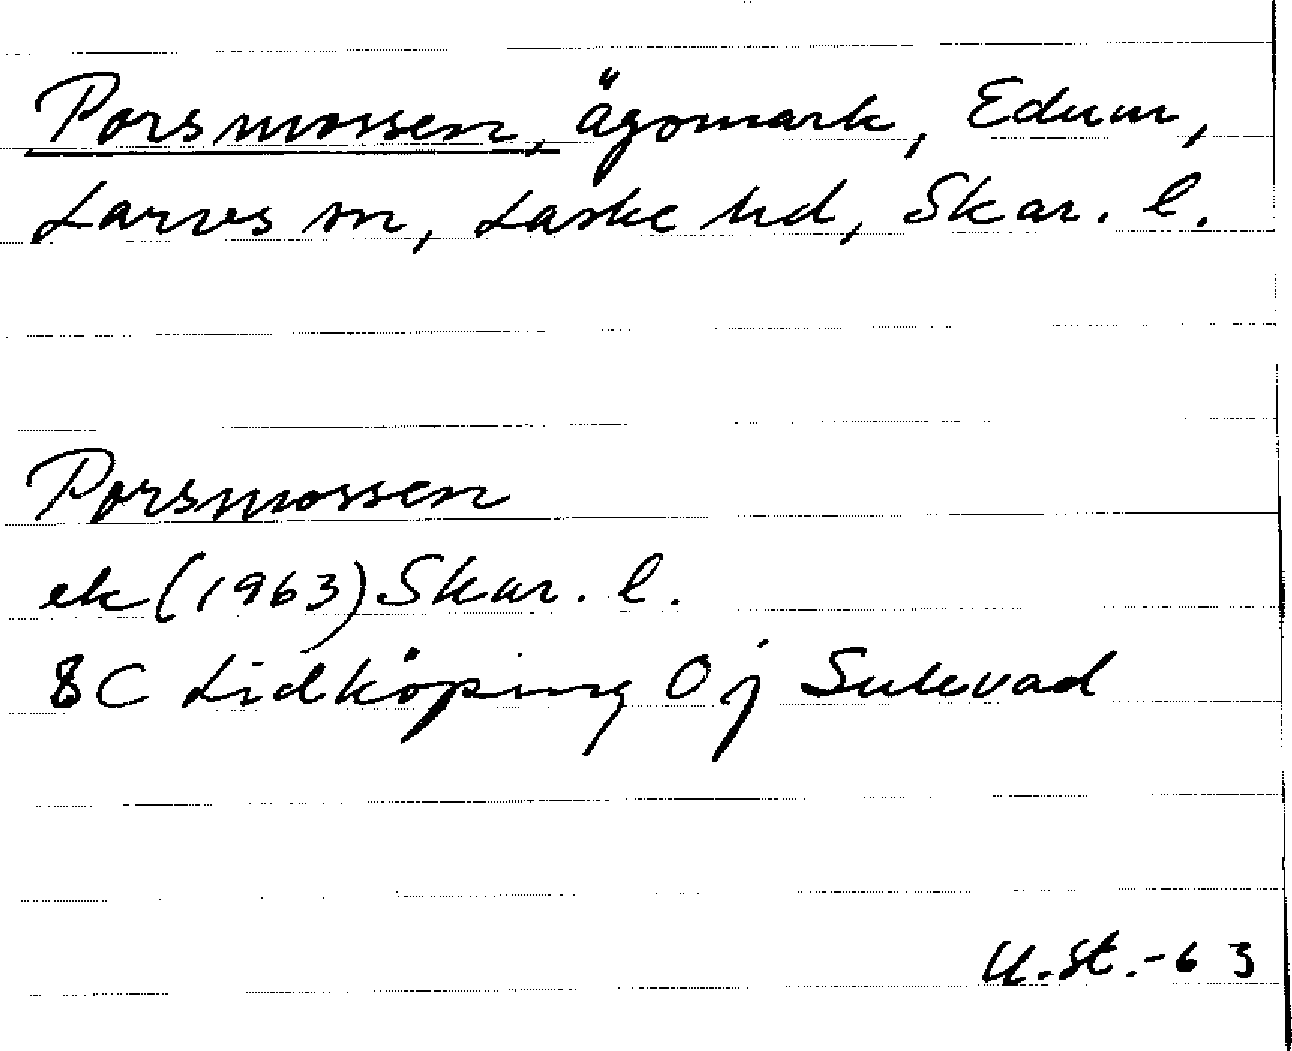 Porsmossen, ägomark, Edum,
Larves sn, Laske hd, Skar. l.
Porsmossen
ek (1963) Skar. l.
8C Lidköping 0j Sulevad
U.St.-63